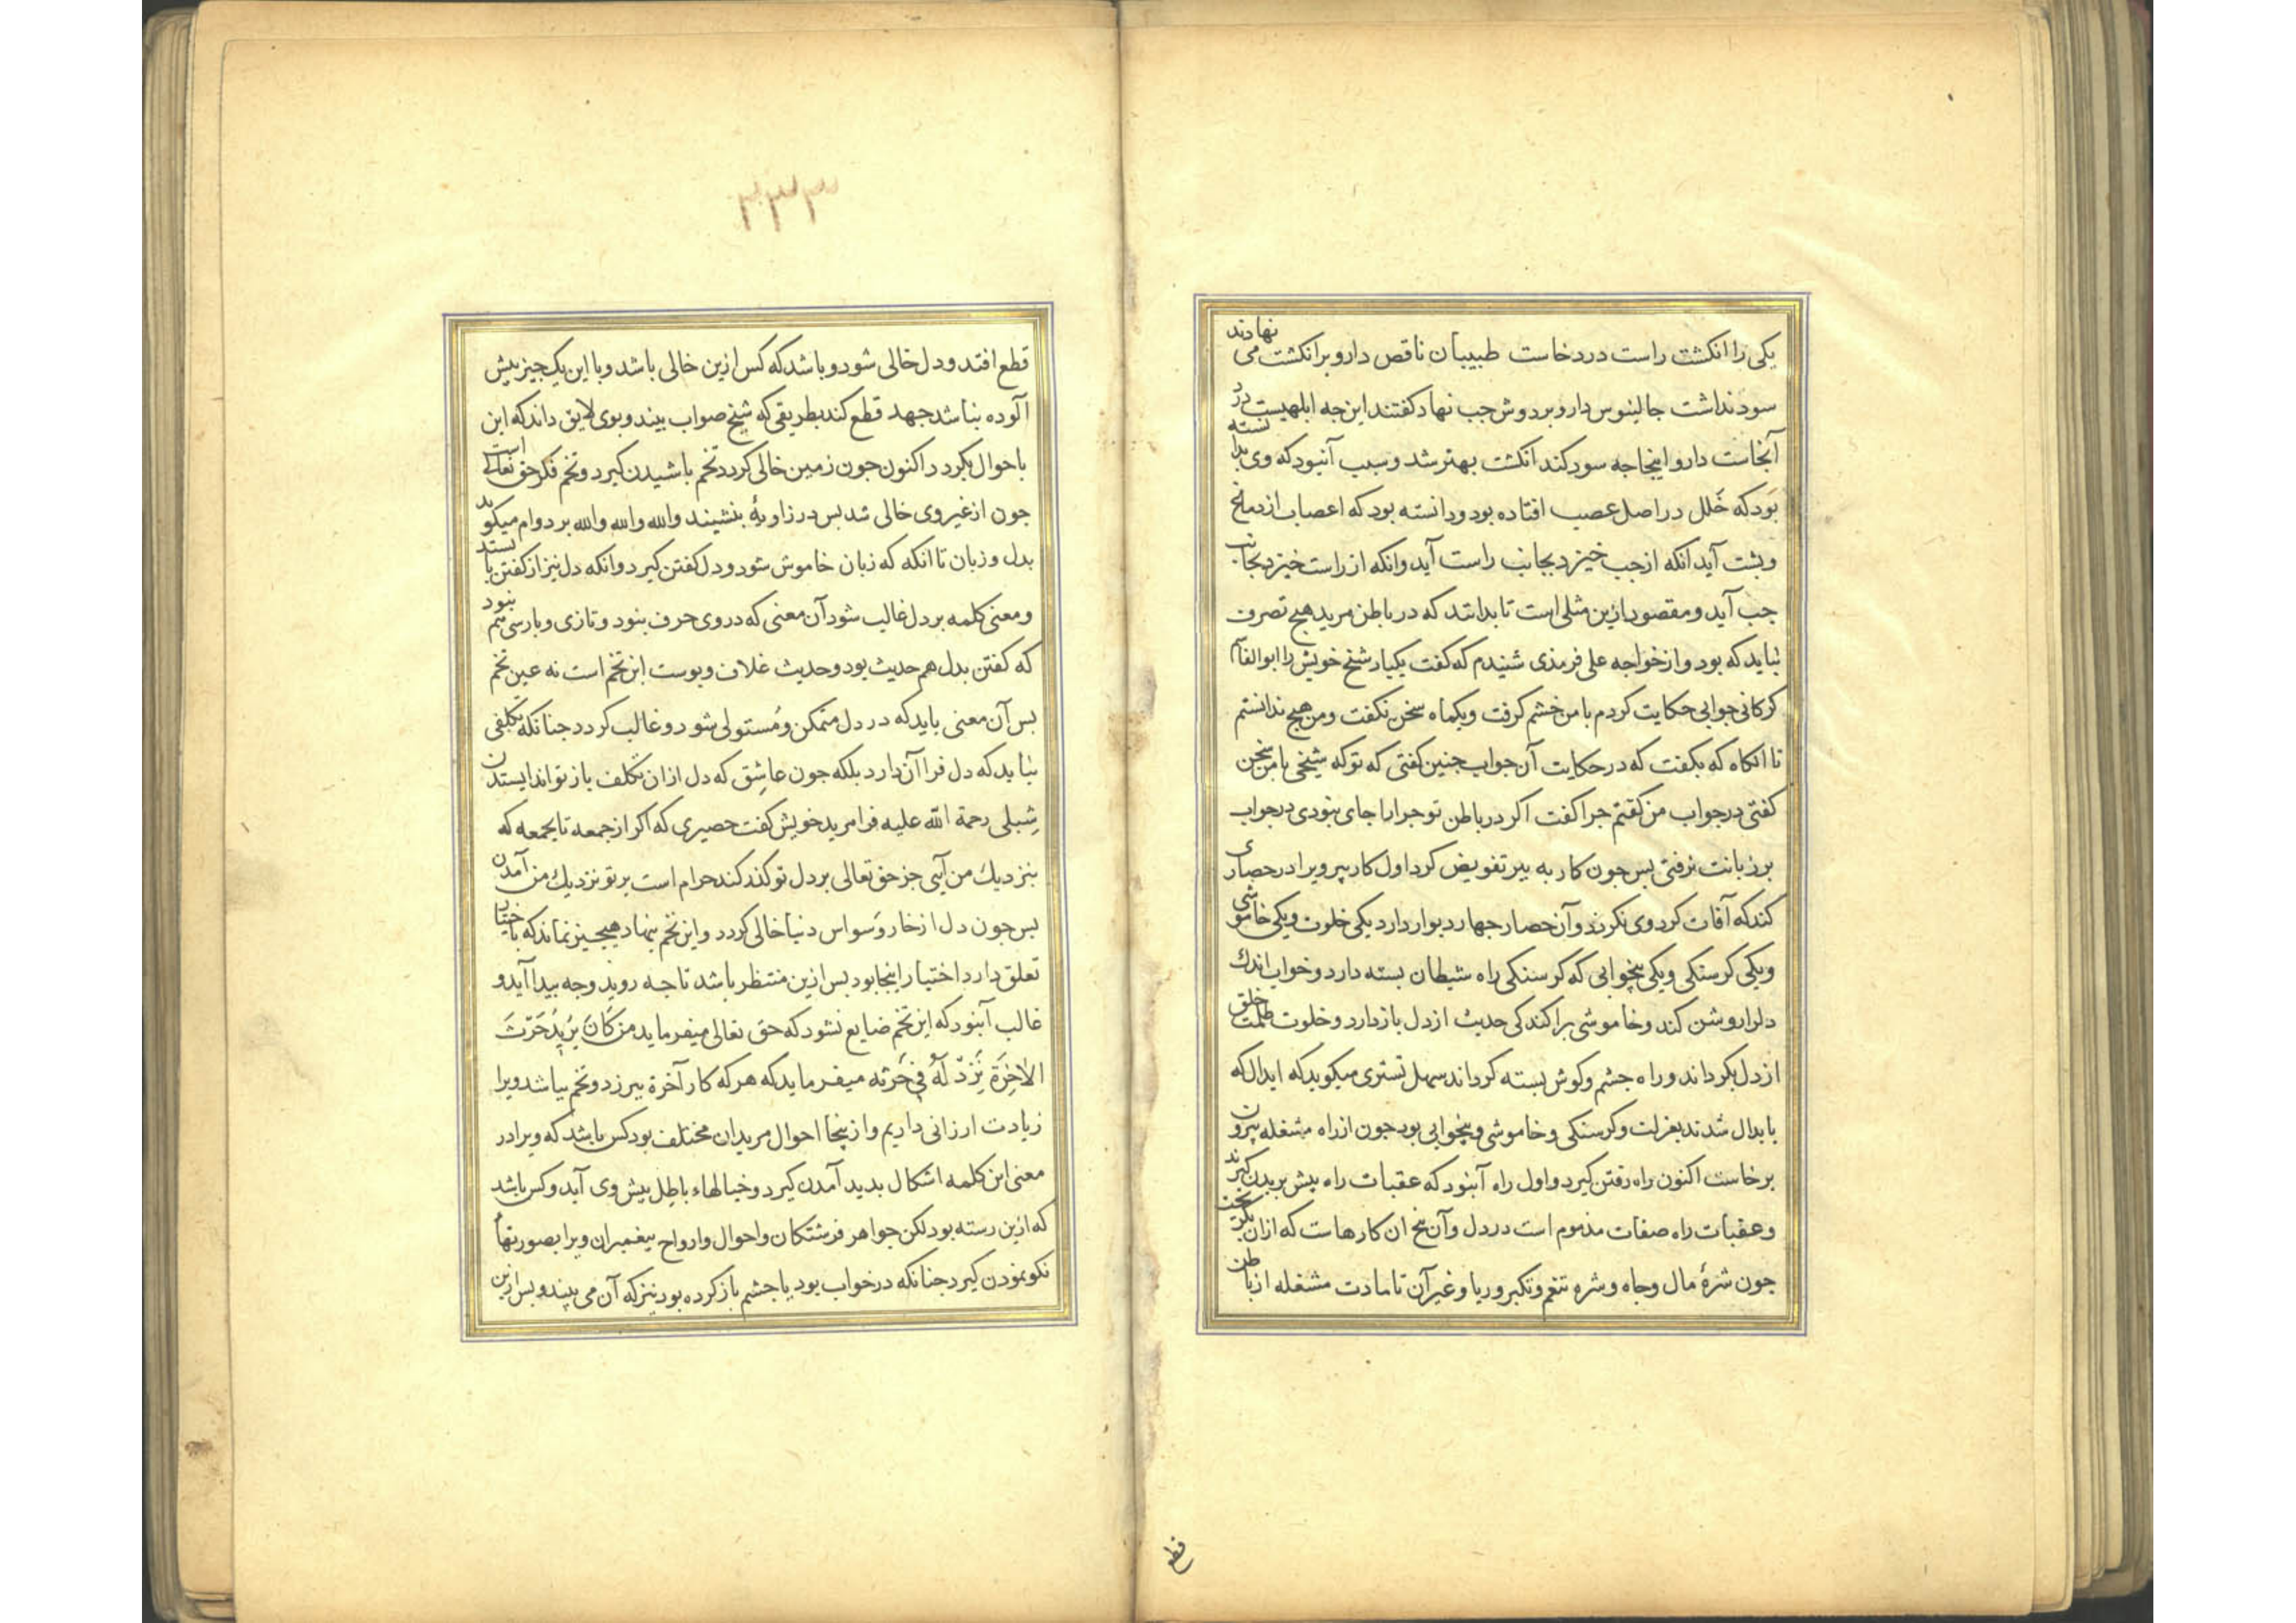 یکی را انکشت راست درد خاست طبیبان ناقص دارو بر انکشت می نهادند
سود نداشت جالینوس دارو بر دوش جب نهاد کفتند این جه ابلهیست درد
آنجاست دارو اینجا جه سود کند انکشت بهتر شد و سبب آنبود که وی بدانسته
بود که خلل در اصل عصب افتاده بود و دانسته بود که اعصاب از دماغ
و بشت آید انکه از جب خیزد بجانب راست آید وانکه از راست خیزد بجانب
جب آید و مقصود ازین مثلی است تا بداشد که در باطن مرید هیج تصرف
نباید که بود و از خواجه علی فرمذی شنیدم که کفت یکبار شخ خویش را ابو القاسم
کرکانی جوابی حکایت کردم با من خشم کرفت و یکماه سخن نکفت و من هیج ندانستم
تا انکاه که بکفت که در حکایت آن جواب جنین کفتی که تو که شیخی با من سخن
کفتی در جواب من کفتم جرا کفت اکر در باطن تو جرا را جای نبودی در جواب
بر زبانت نرفتی بس جون کار به بیر تفویض کرد اول کار بیر ویرا در حصاری
کند که آفات کرد وی نکردد و آن حصار جهار دیوار دارد یکی خلوت و یکی خاموشی
و یکی کرسنکی و یکی بیخوابی که کرسنکی راه شیطان بسته دارد و خواب اندک
دلرا روشن کند و خاموشی براکندکی حدیث از دل باز دارد و خلوت ظلمت خلق
از دل بکرداند و راه جشم و کوش بسته کرداند سهل تستری میکوید که ابدال که
بابدال شدند بعزلت و کرسنکی و خاموشی و بیخوابی بود جون از راه مشغله بیرون
برخاست اکنون راه رفتن کیرد و اول راه آنبود که عقبات راه بیش بریدن کیرند
و عقبات راه صفات مذموم است در دل و آن بیخ ان کارهاست که ازان بکریخت
جون شرهٔ مال و جاه و شره تنعم و تکبر و ریا و غیر آن تا مادت مشغله از باطن
قطع
۳۳۳
قطع افتد و دل خالی شود و باشد که کس ازین خالی باشد و با این یک جیز بیش
آلوده نباشد جهد قطع کند بطریقی که شیخ صواب بیند و بوی لایق داند که این
باحوال بکردد اکنون جون زمین خالی کردد تخم باشیدن کیرد و تخم فکر حق تعالی است
جون از غیر وی خالی شد بس در زاویهٔ بنشیند والله والله والله بر دوام میکوید
بدل و زبان تا انکه که زبان خاموش شود و دل کفتن کیرد وانکه دل نیز از کفتن بایستد
و معنی کلمه بر دل غالب شود آن معنی که در وی حرف نبود و تازی و بارسی هم نبود
که کفتن بدل هم حدیث بود و حدیث غلاف و بوست این تخم است نه عین تخم
بس آن معنی باید که در دل متمکن و مُستولی شود و غالب کردد جنانکه تکلفی
نباید که دل فرا آن دارد بلکه جون عاشِق که دل ازان بتکلف باز تواند ایستدن
شِبلی رحمة الله علیه فرا مرید خویش کفت حصیری که اکر از جمعه تا بجمعه که
بنزدیک من آیی جز حق تعالی بر دل تو کذر کند حرام است بر تو نزدیک من آمدن
بس جون دل از خار وَسواس دنیا خالی کردد و این تخم بنهاد هیجیز نماند که باختیار
تعلق دارد اختیار اینجا بود بس ازین منتظر باشد تا جه روید وجه بیدا آید و
غالب آنبود که این تخم ضایع نشود که حق تعالی میفرماید من کَانَ یُریدُ حَرْثَ
الاٰخِرَة نَزِدْ لَهُ فی حَرْثه میفرماید که هر که کار آخرة بیرزد و تخم بباشد ویرا
زیادت ارزانی داریم و ازینجا احوال مریدان مختلف بود کس باشد که ویرا در
معنی این کلمه اشکال بدید آمدن کیرد و خیالهاء باطِل بیش وی آید و کس باشد
که ازین رسته بود لکن جواهر فرشتکان و احوال و ارواح بیغمبران ویرا بصورتهاء
نکو نمودن کیرد جنانکه در خواب بود یا جشم باز کرده بود نیز که آن می بیند و بس ازین